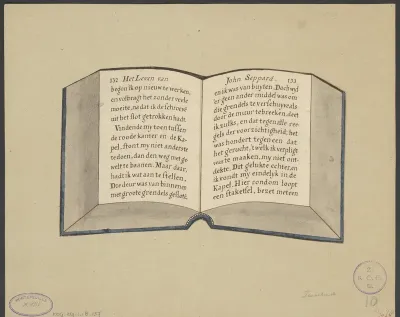 132 Het Leven van
begon ik op nieuw te werken,
en volbragt het zonder veele
moeite, na dat ik de schroeve
uit het slot getrokken hadt.
Vindende my toen tussen
de roode kamer en de Ka-
pel, stont my niet anders te
te doen, dan den weg met ge
welt te baanen. Maar daar
hadt ik wat aan te stellen,
Die deur was van binnenen
met groote grendels gesloten.
John Seppard. 133
en ik was van buyten. Doch wyl
er geen ander middel was om
die grendels te verschuyve als
door de muur te breeken, deet
ik zulks, en dat tegen alle re-
gels der voorzichtigheid; het
was hondert tegen een dat
het gerucht, 't welk ik verpligt
was te maaken, my niet ont-
dekte. Dit gelukte echter, en
ik vondt my eindelijk in de
Kapel. Hier rondom loopt
een staketsel, bezet met een
10